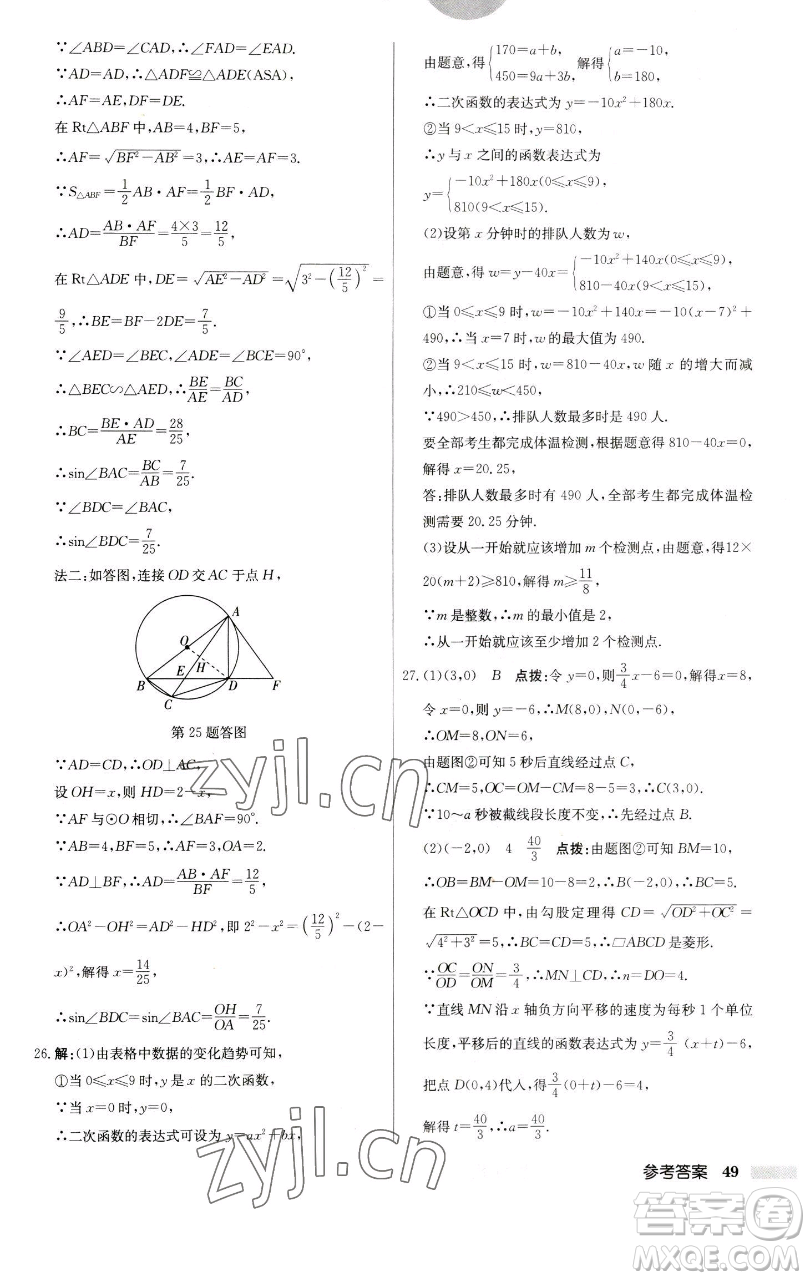 ∵∠ABD=∠CAD,∴∠FAD=∠EAD.
∵AD=AD,∴△ADF≌△ADE(ASA),
∴AF=AE,DF=DE.
在 Rt△ABF 中,AB=4,BF=5,
∴AF=√(BF²-AB²)=3,∴AE=AF=3.
∵S△ABF=1/2 AB·AF=1/2 BF·AD,
∴AD=AB·AF/BF=4×3/5=12/5,
在 Rt△ADE 中,DE=√(AE²-AD²)=√(3²-(12/5)²)=
9/5,∴BE=BF-2DE=7/5.
∵∠AED=∠BEC,∠ADE=∠BCE=90°,
∴△BEC∽△AED,∴BE/AE=BC/AD,
∴BC=BE·AD/AE=28/25,
∴sin∠BAC=BC/AB=7/25.
∵∠BDC=∠BAC,
∴sin∠BDC=7/25.
法二:如答图,连接 OD 交 AC 于点 H,
A
O
E
H
B
C
D
F
第 25 题答图
∵AD=CD,∴OD⊥AC,
设 OH=x,则 HD=2-x,
∵AF 与⊙O 相切,∴∠BAF=90°.
∵AB=4,BF=5,∴AF=3,OA=2.
∵AD⊥BF,∴AD=AB·AF/BF=12/5,
∴OA²-OH²=AD²-HD²,即 2²-x²=(12/5)²-(2-
x)²,解得 x=14/25,
∴sin∠BDC=sin∠BAC=OH/OA=7/25.
26. 解:(1)由表格中数据的变化趋势可知,
①当 0≤x≤9 时,y 是 x 的二次函数,
∵当 x=0 时,y=0,
∴二次函数的表达式可设为 y=ax²+bx,
由题意,得{170=a+b, 450=9a+3b, 解得{a=-10, b=180,
∴二次函数的表达式为 y=-10x²+180x.
②当 9<x≤15 时,y=810,
∴y 与 x 之间的函数表达式为
y={-10x²+180x(0≤x≤9), 810(9<x≤15).
(2)设第 x 分钟时的排队人数为 w,
由题意,得 w=y-40x={-10x²+140x(0≤x≤9), 810-40x(9<x≤15),
①当 0≤x≤9 时,w=-10x²+140x=-10(x-7)²+
490,∴当 x=7 时,w 的最大值为 490.
②当 9<x≤15 时,w=810-40x,w 随 x 的增大而减
小,∴210≤w<450,
∵490>450,∴排队人数最多时是 490 人.
要全部考生都完成体温检测,根据题意得 810-40x=0,
解得 x=20.25,
答:排队人数最多时有 490 人,全部考生都完成体温检
测需要 20.25 分钟.
(3)设从一开始就应该增加 m 个检测点,由题意,得12×
20(m+2)≥810,解得 m≥11/8,
∵m 是整数,∴m 的最小值是 2,
∴从一开始就应该至少增加 2 个检测点.
27. (1)(3,0) B 点拨:令 y=0,则3/4x-6=0,解得x=8,
令 x=0,则 y=-6,∴M(8,0),N(0,-6),
∴OM=8,ON=6,
由题图②可知 5 秒后直线经过点 C,
∴CM=5,OC=OM-CM=8-5=3,∴C(3,0).
∵10~a 秒被截线段长度不变,∴先经过点 B.
(2)(-2,0) 4 40/3 点拨:由题图②可知 BM=10,
∴OB=BM-OM=10-8=2,∴B(-2,0),∴BC=5.
在 Rt△OCD 中,由勾股定理得 CD=√(OD²+OC²)=
√(4²+3²)=5,∴BC=CD=5,∴▱ABCD 是菱形.
∵OC/OD=ON/OM=3/4,∴MN⊥CD,∴n=DO=4.
∵直线 MN 沿 x 轴负方向平移的速度为每秒 1 个单位
长度,平移后的直线的函数表达式为 y=3/4(x+t)-6,
把点 D(0,4)代入,得3/4t-6=4,
解得 t=40/3,∴a=40/3.
参考答案 49
zyjl.cn
zyjl.cn
答案圈
MXQE.COM